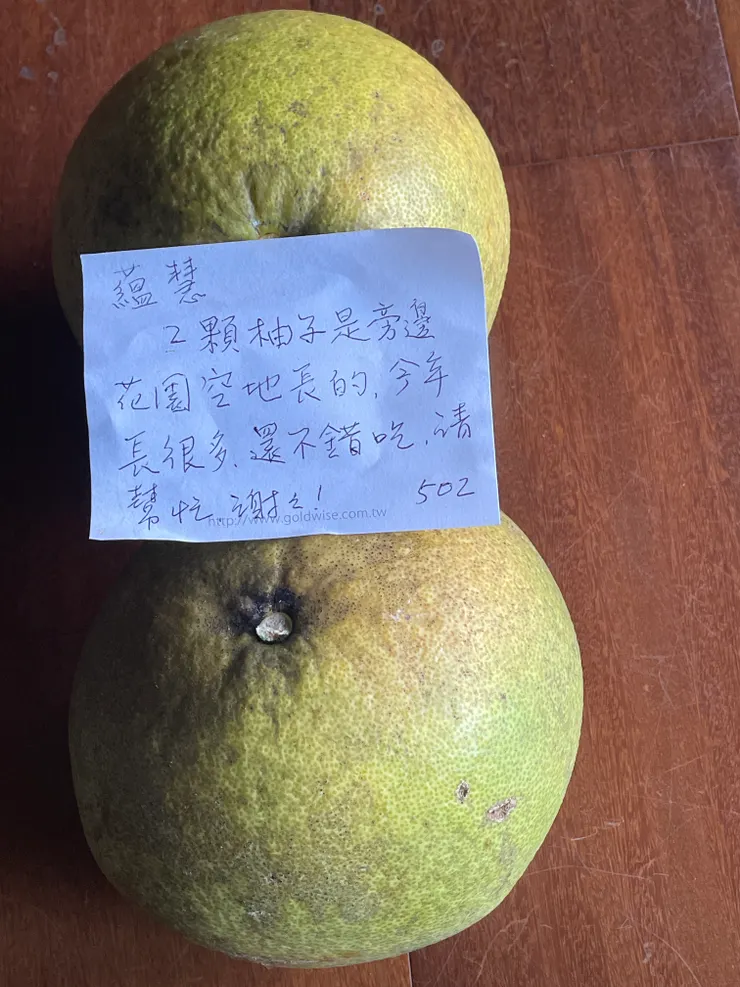 蘊慧
2顆柚子是旁邊
花園空地長的,今年
長很多、還不錯吃,請
幫忙,謝々!
502
http://www.goldwise.com.tw